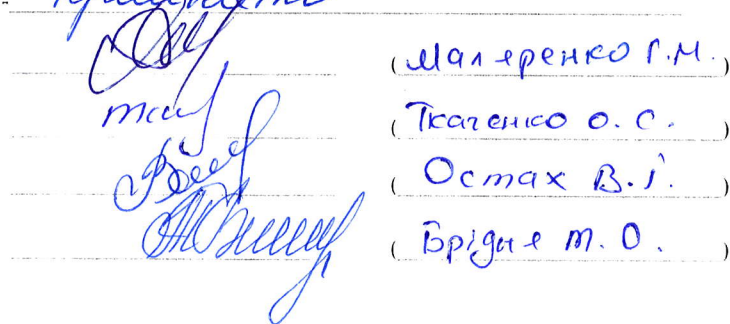 (Маляренко Г.М.)
(Ткаченко О.С.)
(Остах В.І.)
(Брідня Т.О.)